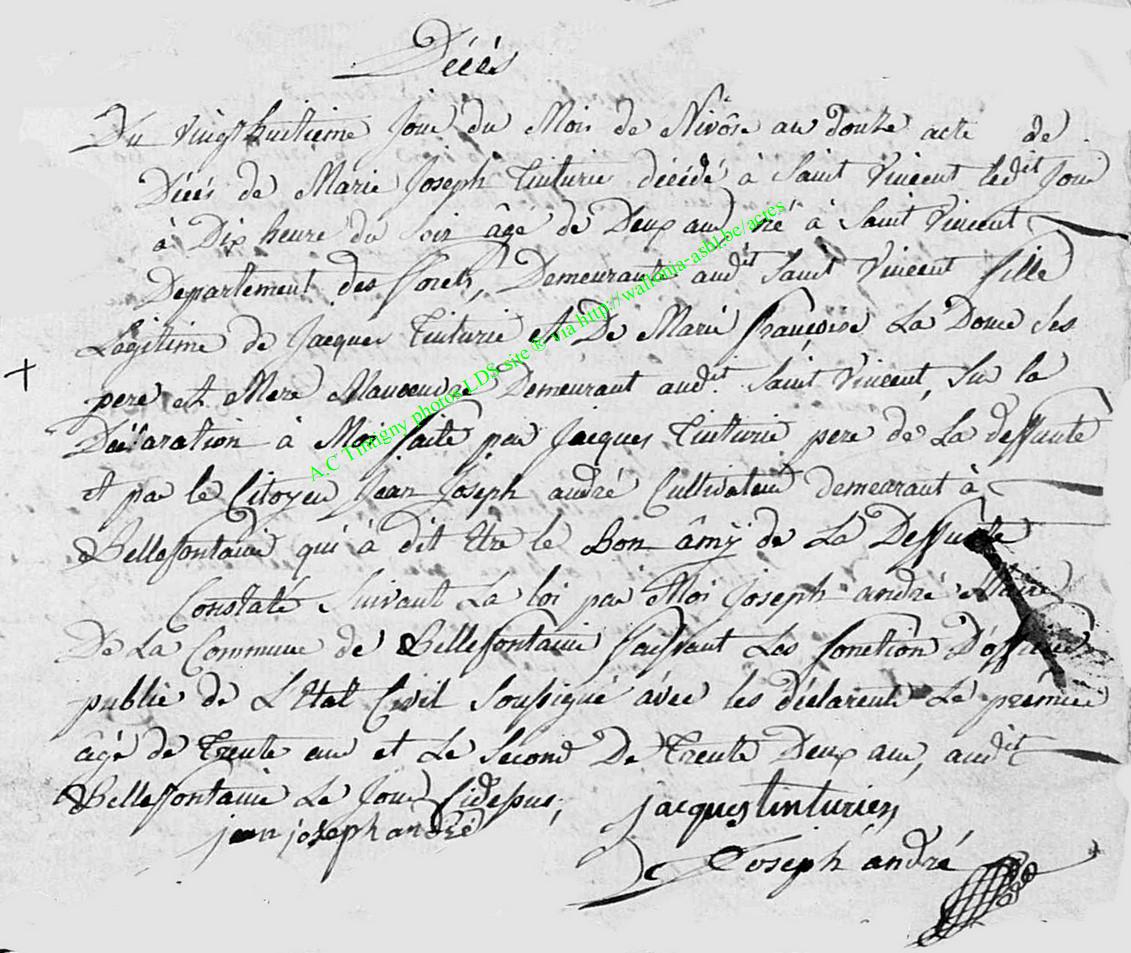 Décés
Du vingt huitieme Jour du Mois de Nivôse an douze acte de
Décés de Marie Joseph Tinturie décédé à Saint Vincent ledit Jour
à Dix heure du Soir âgé de Deux ans, né à Saint Vincent
Departement des Forets, Demeurant audit Saint Vincent fille
Légitime de Jacques Tinturie et De Marie françoise La Dome ses
pere et Mere Demeurant audit Saint Vincent, Sur la
Déclaration à Moi faite par Jacques Tinturie pere de La deffunte
et par le Citoyen Jean Joseph andré Cultivateur demeurant à
Bellefontaine qui à dit Etre le Bon âmÿ de La Deffunte
Constaté Suivant La loi par Moi Joseph andré Maire
De La Commune de Bellefontaine faisant Les fonction D'officier
public de L'Etat Civil Soussigné avec les déclarents Le premier
âgé de Trente ans et Le Second De Trente Deux ans, audit
Bellefontaine Le Jour Cidessus,
jacques tinturier,
jean joseph andré
Joseph andré
A.C Tintigny photos LDS site ® via http://wallonia-asbl.be/actes